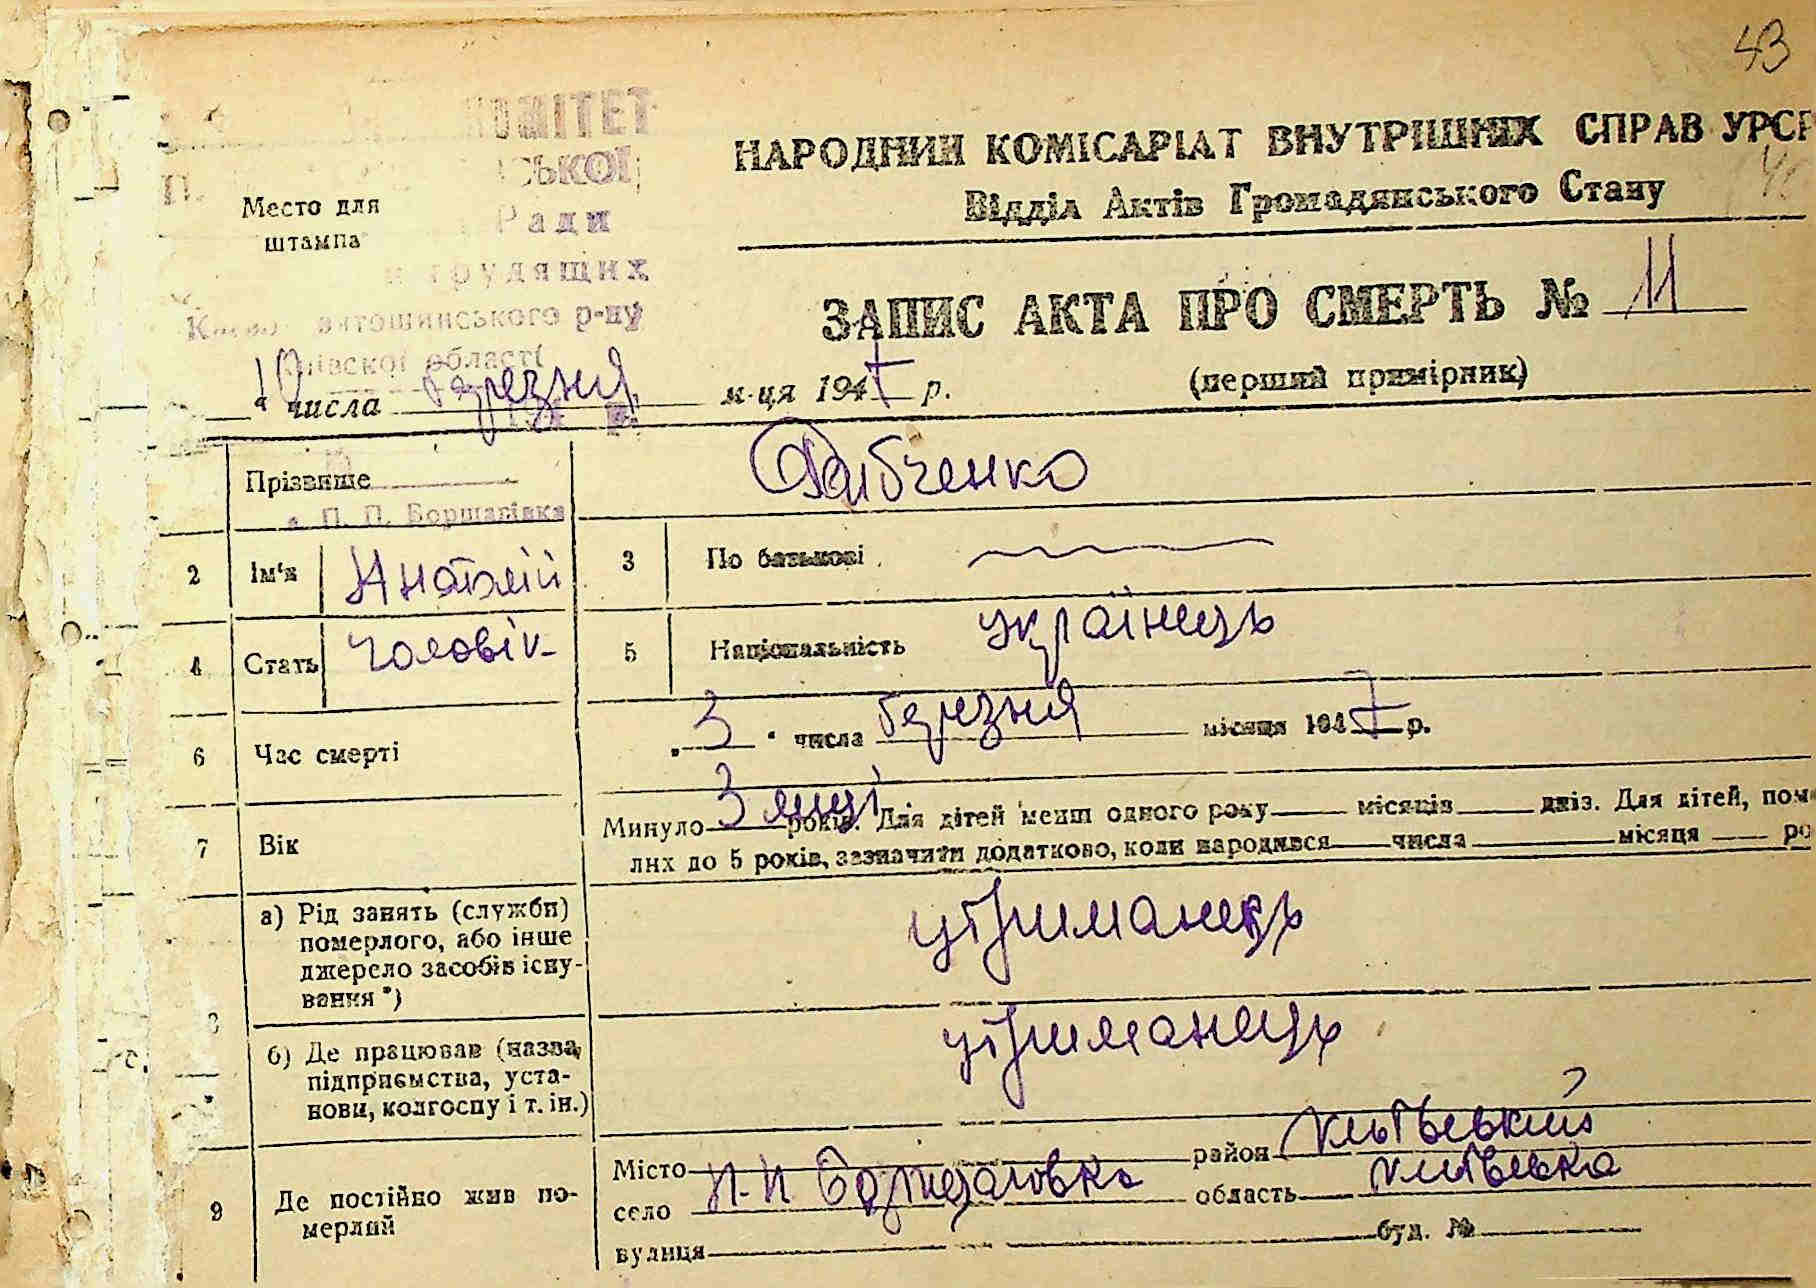 43
КОМІТЕТ
СЬКОЇ
Ради
трудящих
Києво - витошинського р-ну
області
Место для
штампа
НАРОДНИЙ КОМІСАРІАТ ВНУТРІШНІХ СПРАВ УРСР
Відділ Актів Громадянського Стану
ЗАПИС АКТА ПРО СМЕРТЬ № 11
(перший примірник)
"10 числа березня м-ця 1947 р.
Прізвище
с. П. П. Борщагівка
2 Ім'я Анатолій 3 По батькові
4 Стать чоловік 5 Національність українець
6 Час смерті „3" числа березня місяця 1947 р.
7 Вік Минуло 3 років. Для дітей менш одного року місяців днів. Для дітей, пом
лих до 5 років, зазначити додатково, коли народився числа місяця ро
8 а) Рід занять (служби)
померлого, або інше
джерело засобів існу-
вання *)
утриманець
б) Де працював (назва
підприємства, уста-
нови, колгоспу і т. ін.)
утриманець
9 Де постійно жив по-
мерлий
Місто район
село П-П Борщаговка область
вулиця буд. №